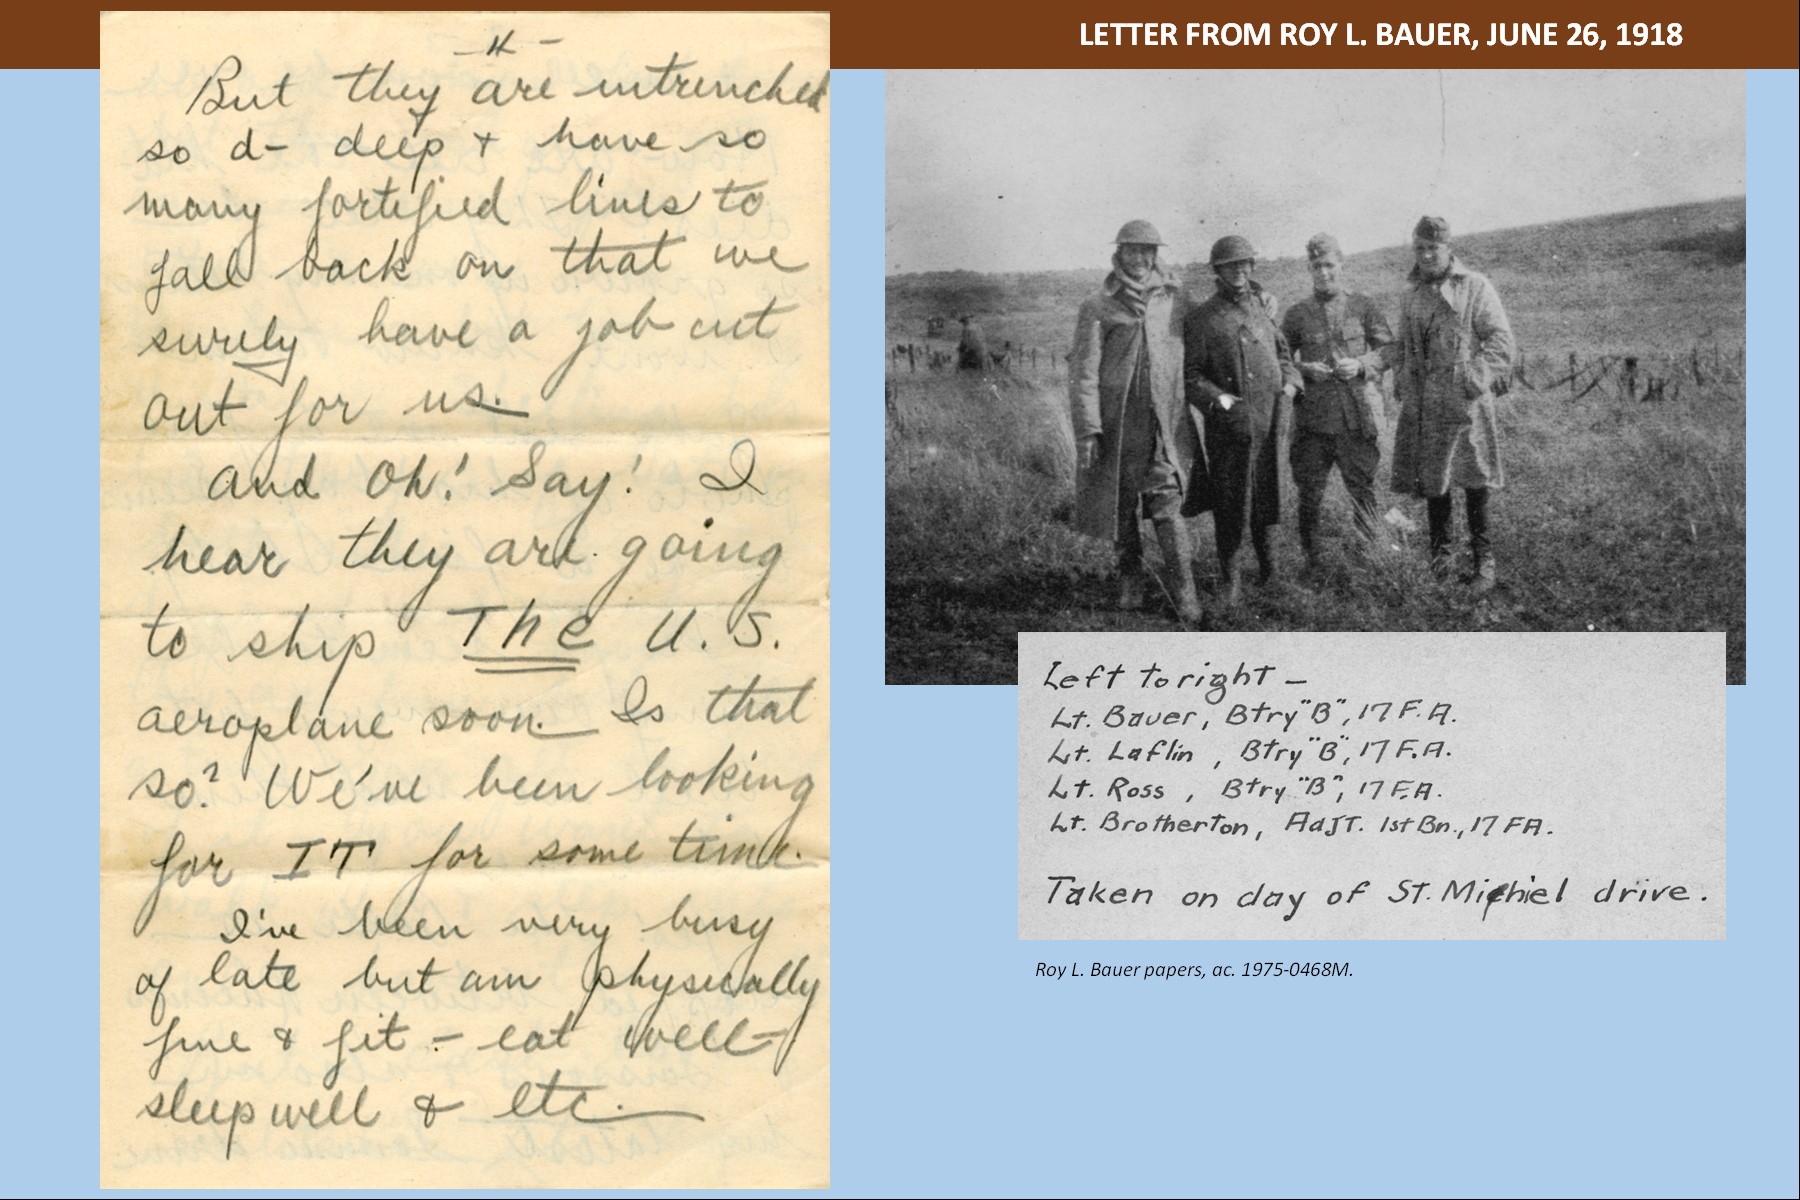 LETTER FROM ROY L. BAUER, JUNE 26, 1918
But they are intrenched
so d– deep + have so
many fortified lines to
fall back on that we
surely have a job cut
out for us.
And Oh! Say! I
hear they are going
to ship THE U.S.
aeroplane soon. Is that
so? We've been looking
for IT for some time.
I've been very busy
of late but am physically
fine & fit – eat well –
sleep well & etc.
Left to right –
Lt. Bauer, Btry "B", 17 F.A.
Lt. Laflin, Btry "B", 17 F.A.
Lt. Ross, Btry "B", 17 F.A.
Lt. Brotherton, AdJT. 1st Bn., 17 FA.
Taken on day of St. Mihiel drive.
Roy L. Bauer papers, ac. 1975-0468M.